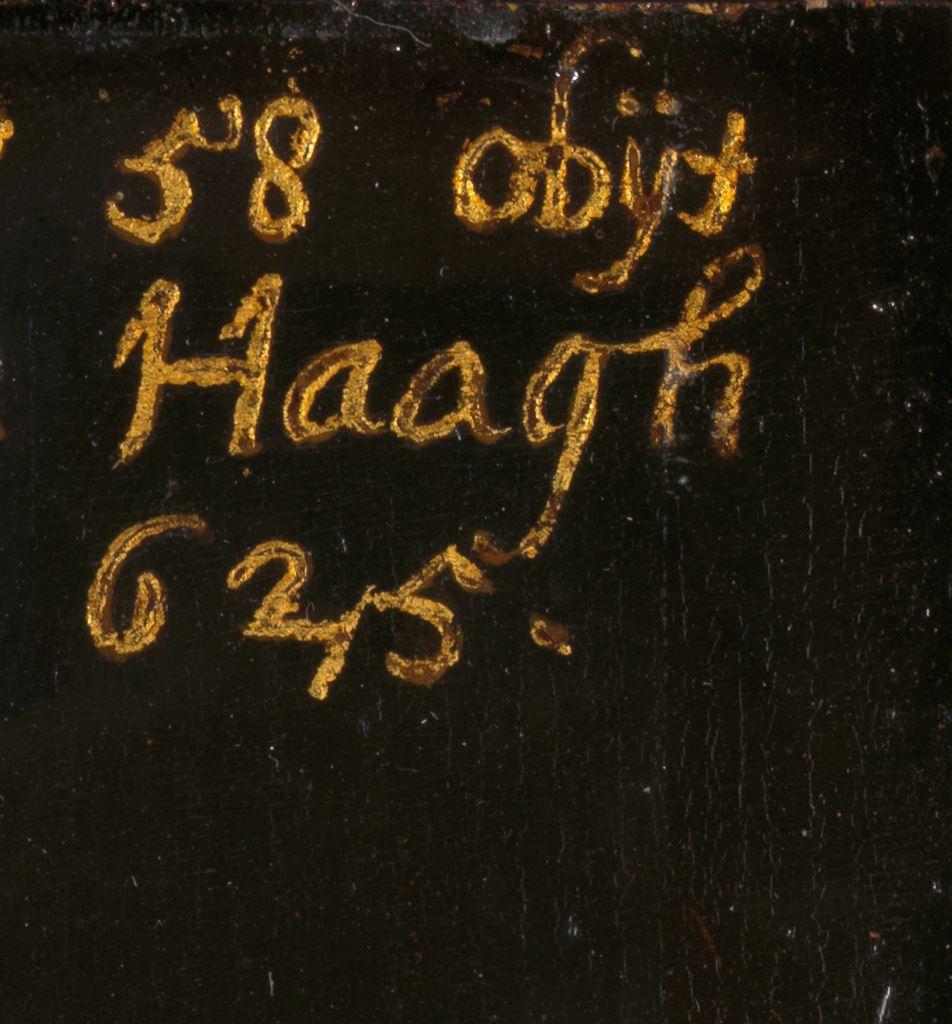 58 obijt
Haagh
625.